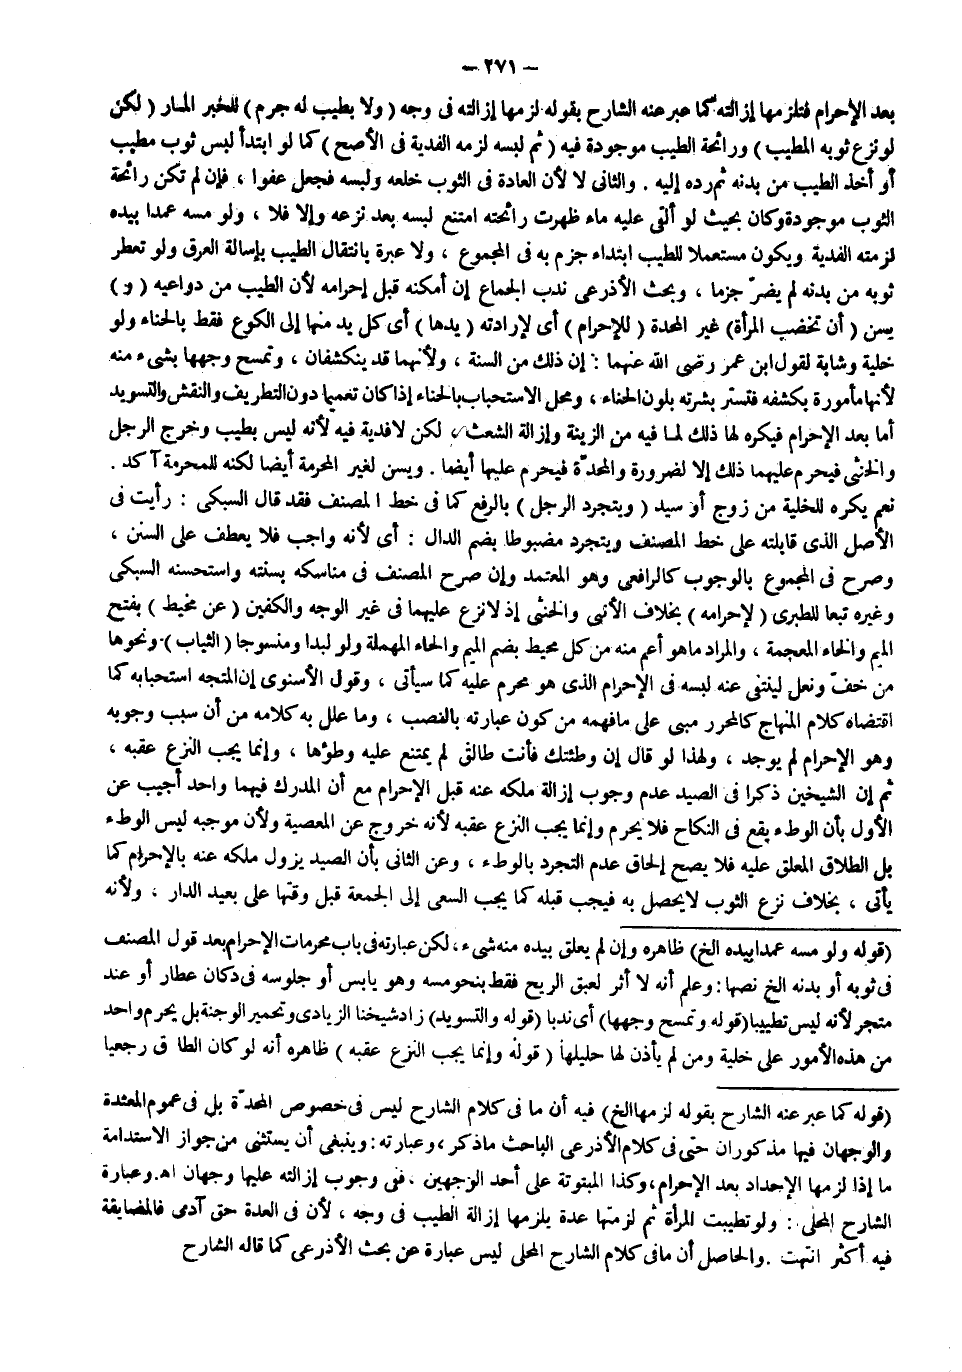 — ٢٧١ —
بعد الإحرام فتلزمها إزالته كما عبر عنه الشارح بقوله لزمها إزالته فى وجه ( ولا بطيب له جرم ) للخبر المار ( لكن
لو نزع ثوبه المطيب ) ورائحة الطيب موجودة فيه ( ثم لبسه لزمه الفدية فى الأصح ) كما لو ابتدأ لبس ثوب مطيب
أو أخذ الطيب من بدنه ثم رده إليه . والثانى لا لأن العادة فى الثوب خلعه ولبسه فجعل عفوا ، فإن لم تكن رائحة
الثوب موجودة وكان بحيث لو ألقى عليه ماء ظهرت رائحته امتنع لبسه بعد نزعه وإلا فلا ، ولو مسه عمدا بيده
لزمته الفدية ويكون مستعملا للطيب ابتداء جزم به فى المجموع ، ولا عبرة بانتقال الطيب بإسالة العرق ولو تعطر
ثوبه من بدنه لم يضرّ جزما ، وبحث الأذرعى ندب الجماع إن أمكنه قبل إحرامه لأن الطيب من دواعيه ( و )
يسن ( أن تخضب المرأة ) غير المحدة ( للإحرام ) أى لإرادته ( يدها ) أى كل يد منها إلى الكوع فقط بالحناء ولو
خلية وشابة لقول ابن عمر رضى الله عنهما : إن ذلك من السنة ، ولأنهما قد ينكشفان ، وتمسح وجهها بشىء منه
لأنها مأمورة بكشفه فتستر بشرته بلون الحناء ، ومحل الاستحباب بالحناء إذا كان تعميما دون التطريف والنقش والتسويد
أما بعد الإحرام فيكره لها ذلك لما فيه من الزينة وإزالة الشعث ، لكن لا فدية فيه لأنه ليس بطيب وخرج الرجل
والخنثى فيحرم عليهما ذلك إلا لضرورة والمحدّة فيحرم عليها أيضا . ويسن لغير المحرمة أيضا لكنه للمحرمة آكد .
نعم يكره للخلية من زوج أو سيد ( ويتجرد الرجل ) بالرفع كما فى خط المصنف فقد قال السبكى : رأيت فى
الأصل الذى قابلته على خط المصنف ويتجرد مضبوطا بضم الدال : أى لأنه واجب فلا يعطف على السنن ،
وصرح فى المجموع بالوجوب كالرافعى وهو المعتمد وإن صرح المصنف فى مناسكه بسنته واستحسنه السبكى
وغيره تبعا للطبرى ( لإحرامه ) بخلاف الأنثى والخنثى إذ لا نزع عليهما فى غير الوجه والكفين ( عن مخيط ) بفتح
الميم والخاء المعجمة ، والمراد ما هو أعم منه من كل محيط بضم الميم والحاء المهملة ولو لبدا ومنسوجا ( الثياب ) ونحوها
من خفّ ونعل لينتفى عنه لبسه فى الإحرام الذى هو محرم عليه كما سيأتى ، وقول الأسنوى إن المتجه استحبابه كما
اقتضاه كلام المنهاج كالمحرر مبنى على ما فهمه من كون عبارته بالنصب ، وما علل به كلامه من أن سبب وجوبه
وهو الإحرام لم يوجد ، ولهذا لو قال إن وطئتك فأنت طالق لم يمتنع عليه وطؤها ، وإنما يجب النزع عقبه ،
ثم إن الشيخين ذكرا فى الصيد عدم وجوب إزالة ملكه عنه قبل الإحرام مع أن المدرك فيهما واحد أجيب عن
الأول بأن الوطء يقع فى النكاح فلا يحرم وإنما يجب النزع عقبه لأنه خروج عن المعصية ولأن موجبه ليس الوطء
بل الطلاق المعلق عليه فلا يصح إلحاق عدم التجرد بالوطء ، وعن الثانى بأن الصيد يزول ملكه عنه بالإحرام كما
يأتى ، بخلاف نزع الثوب لا يحصل به فيجب قبله كما يجب السعى إلى الجمعة قبل وقتها على بعيد الدار ، ولأنه
(قوله ولو مسه عمدا بيده الخ) ظاهره وإن لم يعلق بيده منه شىء ، لكن عبارته فى باب محرمات الإحرام بعد قول المصنف
فى ثوبه أو بدنه الخ نصها : وعلم أنه لا أثر لعبق الريح فقط بنحو مسه وهو يابس أو جلوسه فى دكان عطار أو عند
متجر لأنه ليس تطييبا (قوله وتمسح وجهها) أى ندبا (قوله والتسويد) زاد شيخنا الزيادى وتحمير الوجنة بل يحرم واحد
من هذه الأمور على خلية ومن لم يأذن لها حليلها ( قوله وإنما يجب النزع عقبه ) ظاهره أنه لو كان الطلاق رجعيا
(قوله كما عبر عنه الشارح بقوله لزمها الخ) فيه أن ما فى كلام الشارح ليس فى خصوص المحدّة بل فى عموم المعتدة
والوجهان فيها مذكوران حتى فى كلام الأذرعى الباحث ما ذكر ، وعبارته : وينبغى أن يستثنى من جواز الاستدامة
ما إذا لزمها الإحداد بعد الإحرام ، وكذا المبتوتة على أحد الوجهين ، ففى وجوب إزالته عليها وجهان اهـ . وعبارة
الشارح المحلى : ولو تطيبت المرأة ثم لزمتها عدة يلزمها إزالة الطيب فى وجه ، لأن فى العدة حق آدمى فالمضايقة
فيه أكثر انتهت . والحاصل أن ما فى كلام الشارح المحلى ليس عبارة عن بحث الأذرعى كما قاله الشارح